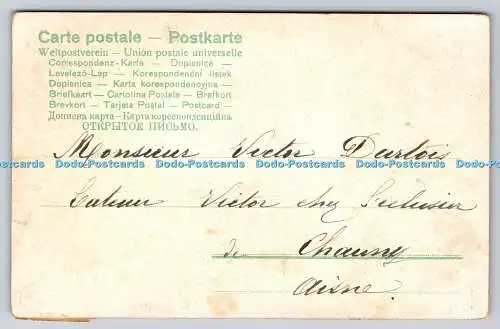 Carte postale — Postkarte
Weltpostverein – Union postale universelle
Correspondenz-Karte — Dopisnice —
Levelező-Lap — Korespondenční lístek
Dopisnica — Karta korespondencyjna —
Briefkaart — Cartolina Postale — Brefkort
Brevkort — Tarjeta Postal — Postcard —
Дописна карта — Карта кореспонденційна
ОТКРЫТОЕ ПИСЬМО.
Monsieur Victor Dartois
Dodo-Postcards Dodo-Postcards Dodo-Postcards Dodo-Postcards Dodo-Postcards Dodo-Postcards
Victor chez
de
Chauny
Aisne